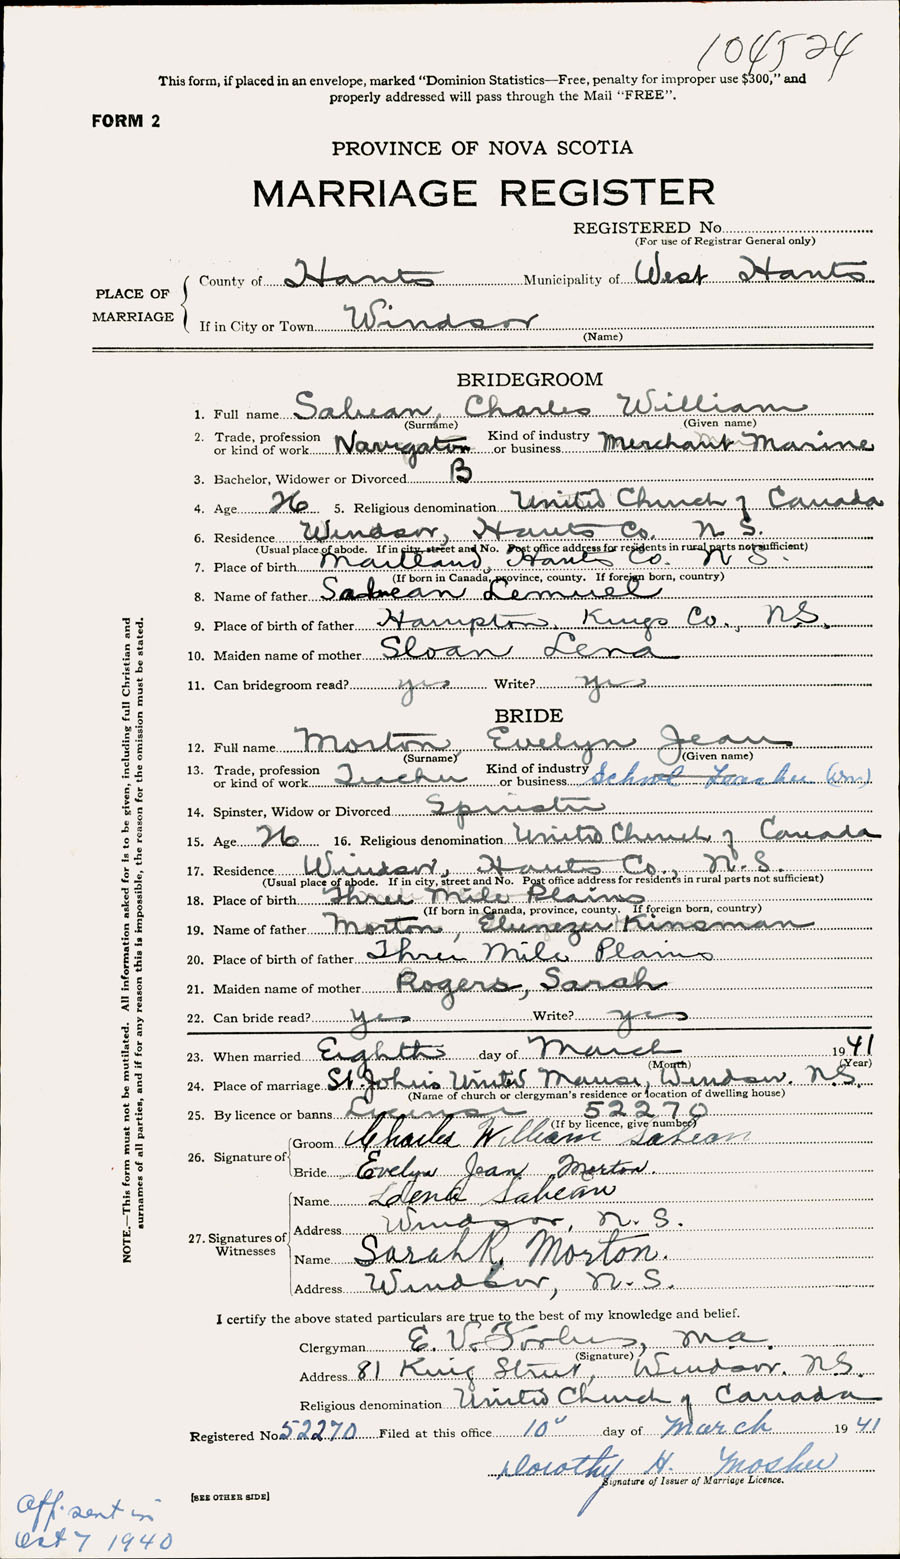 104524
This form, if placed in an envelope, marked "Dominion Statistics—Free, penalty for improper use $300," and
properly addressed will pass through the Mail "FREE".
FORM 2
PROVINCE OF NOVA SCOTIA
MARRIAGE REGISTER
REGISTERED No.
(For use of Registrar General only)
PLACE OF MARRIAGE
County of Hants Municipality of West Hants
If in City or Town Windsor
(Name)
BRIDEGROOM
1. Full name Sabean, Charles William
(Surname) (Given name)
2. Trade, profession or kind of work Navigator Kind of industry or business Merchant Marine
3. Bachelor, Widower or Divorced B
4. Age 26 5. Religious denomination United Church of Canada
6. Residence Windsor, Hants Co. N.S.
(Usual place of abode. If in city, street and No. Post office address for residents in rural parts not sufficient)
7. Place of birth Maitland, Hants Co. N.S.
(If born in Canada, province, county. If foreign born, country)
8. Name of father Sabean Lemuel
9. Place of birth of father Hampton, Kings Co., N.S.
10. Maiden name of mother Sloan Lena
11. Can bridegroom read? yes Write? yes
BRIDE
12. Full name Morton, Evelyn Jean
(Surname) (Given name)
13. Trade, profession or kind of work Teacher Kind of industry or business School Teacher
14. Spinster, Widow or Divorced Spinster
15. Age 26 16. Religious denomination United Church of Canada
17. Residence Windsor, Hants Co., N.S.
(Usual place of abode. If in city, street and No. Post office address for residents in rural parts not sufficient)
18. Place of birth Three Mile Plains
(If born in Canada, province, county. If foreign born, country)
19. Name of father Morton, Ebenezer Kinsman
20. Place of birth of father Three Mile Plains
21. Maiden name of mother Rogers, Sarah
22. Can bride read? yes Write? yes
23. When married Eighth day of March 1941
(Month) (Year)
24. Place of marriage St. John's United Manse, Windsor. N.S.
(Name of church or clergyman's residence or location of dwelling house)
25. By licence or banns License 52270
(If by licence, give number)
26. Signature of
Groom Charles William Sabean
Bride Evelyn Jean Morton.
27. Signatures of Witnesses
Name Lena Sabean
Address Windsor, N.S.
Name Sarah R. Morton.
Address Windsor, N.S.
I certify the above stated particulars are true to the best of my knowledge and belief.
Clergyman E. V. Forbes, M.A.
(Signature)
Address 81 King Street, Windsor. N.S.
Religious denomination United Church of Canada
Registered No. 52270 Filed at this office 10" day of March 1941
Dorothy H. Mosher
Signature of Issuer of Marriage Licence.
[SEE OTHER SIDE]
Aff. sent in
Oct 7 1940
NOTE.—This form must not be mutilated. All information asked for is to be given, including full Christian and
surnames of all parties, and if for any reason this is impossible, the reason for the omission must be stated.